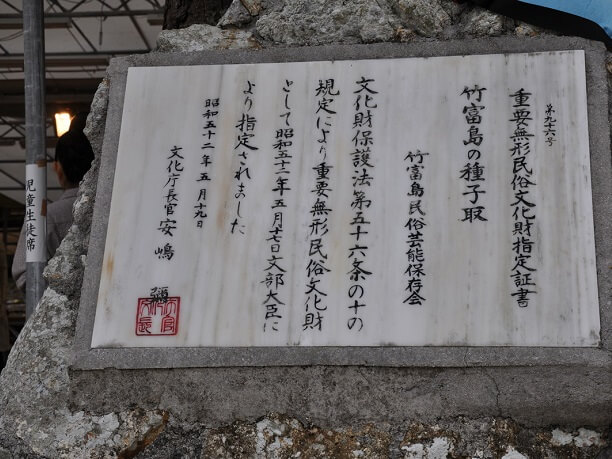 第九六号
重要無形民俗文化財指定証書
竹富島の種子取
竹富島民俗芸能保存会
文化財保護法第五十六条の十の
規定により重要無形民俗文化財
として昭和五十二年五月十七日文部大臣に
より指定されました
昭和五十二年五月十九日
文化庁長官 安嶋 彌
児童生徒席